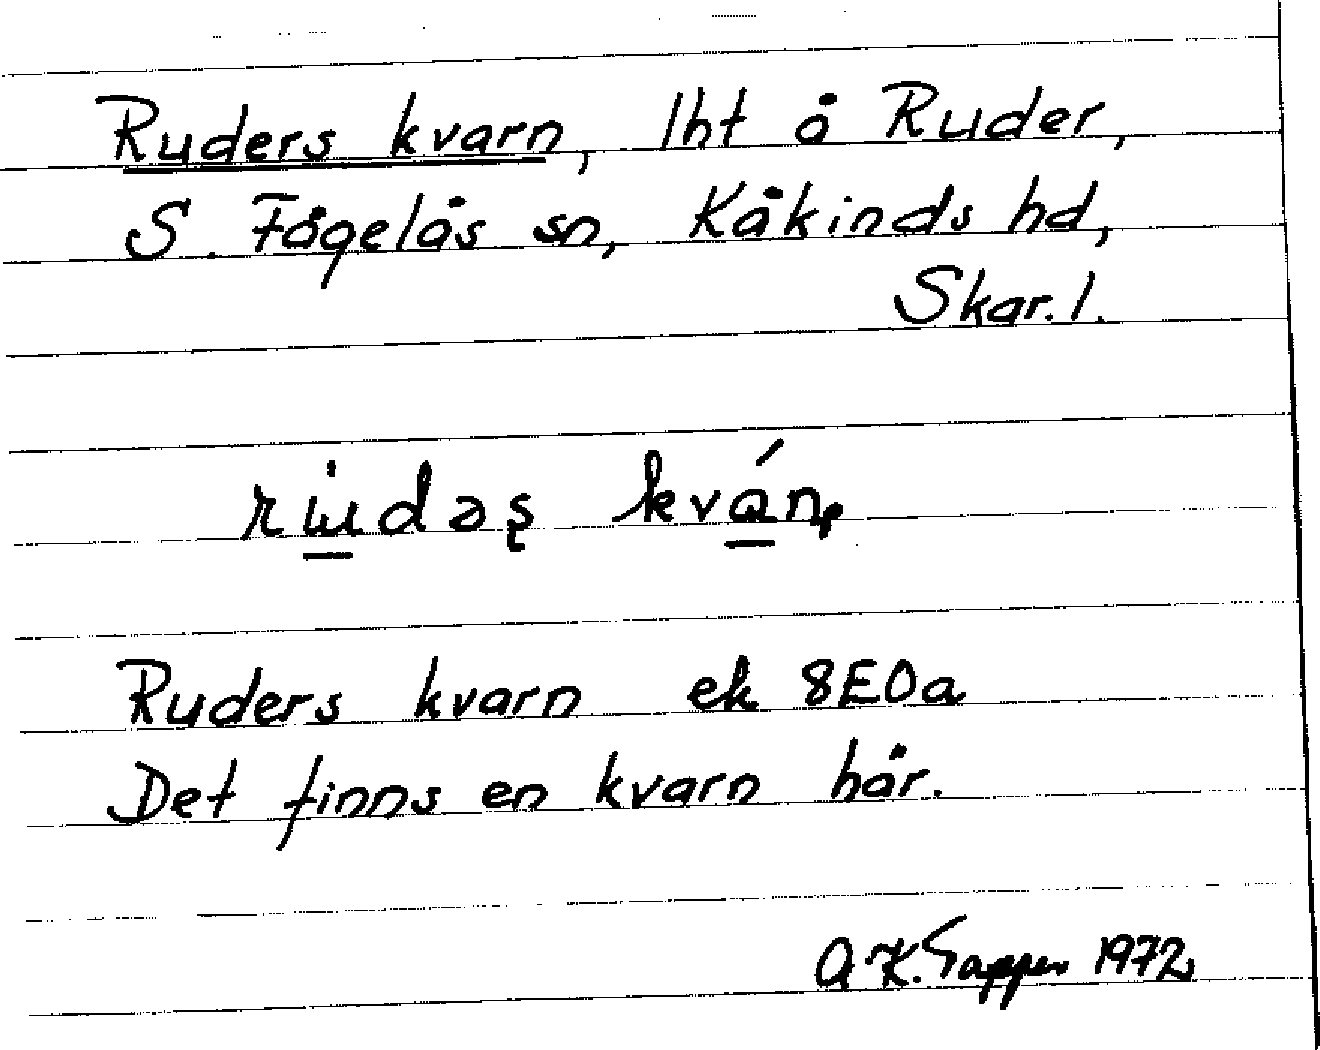 Ruders kvarn, lht å Ruder,
S. Fågelås sn, Kåkinds hd,
Skar. l.
kván
Ruders kvarn ek 8E0a
Det finns en kvarn här.
1972